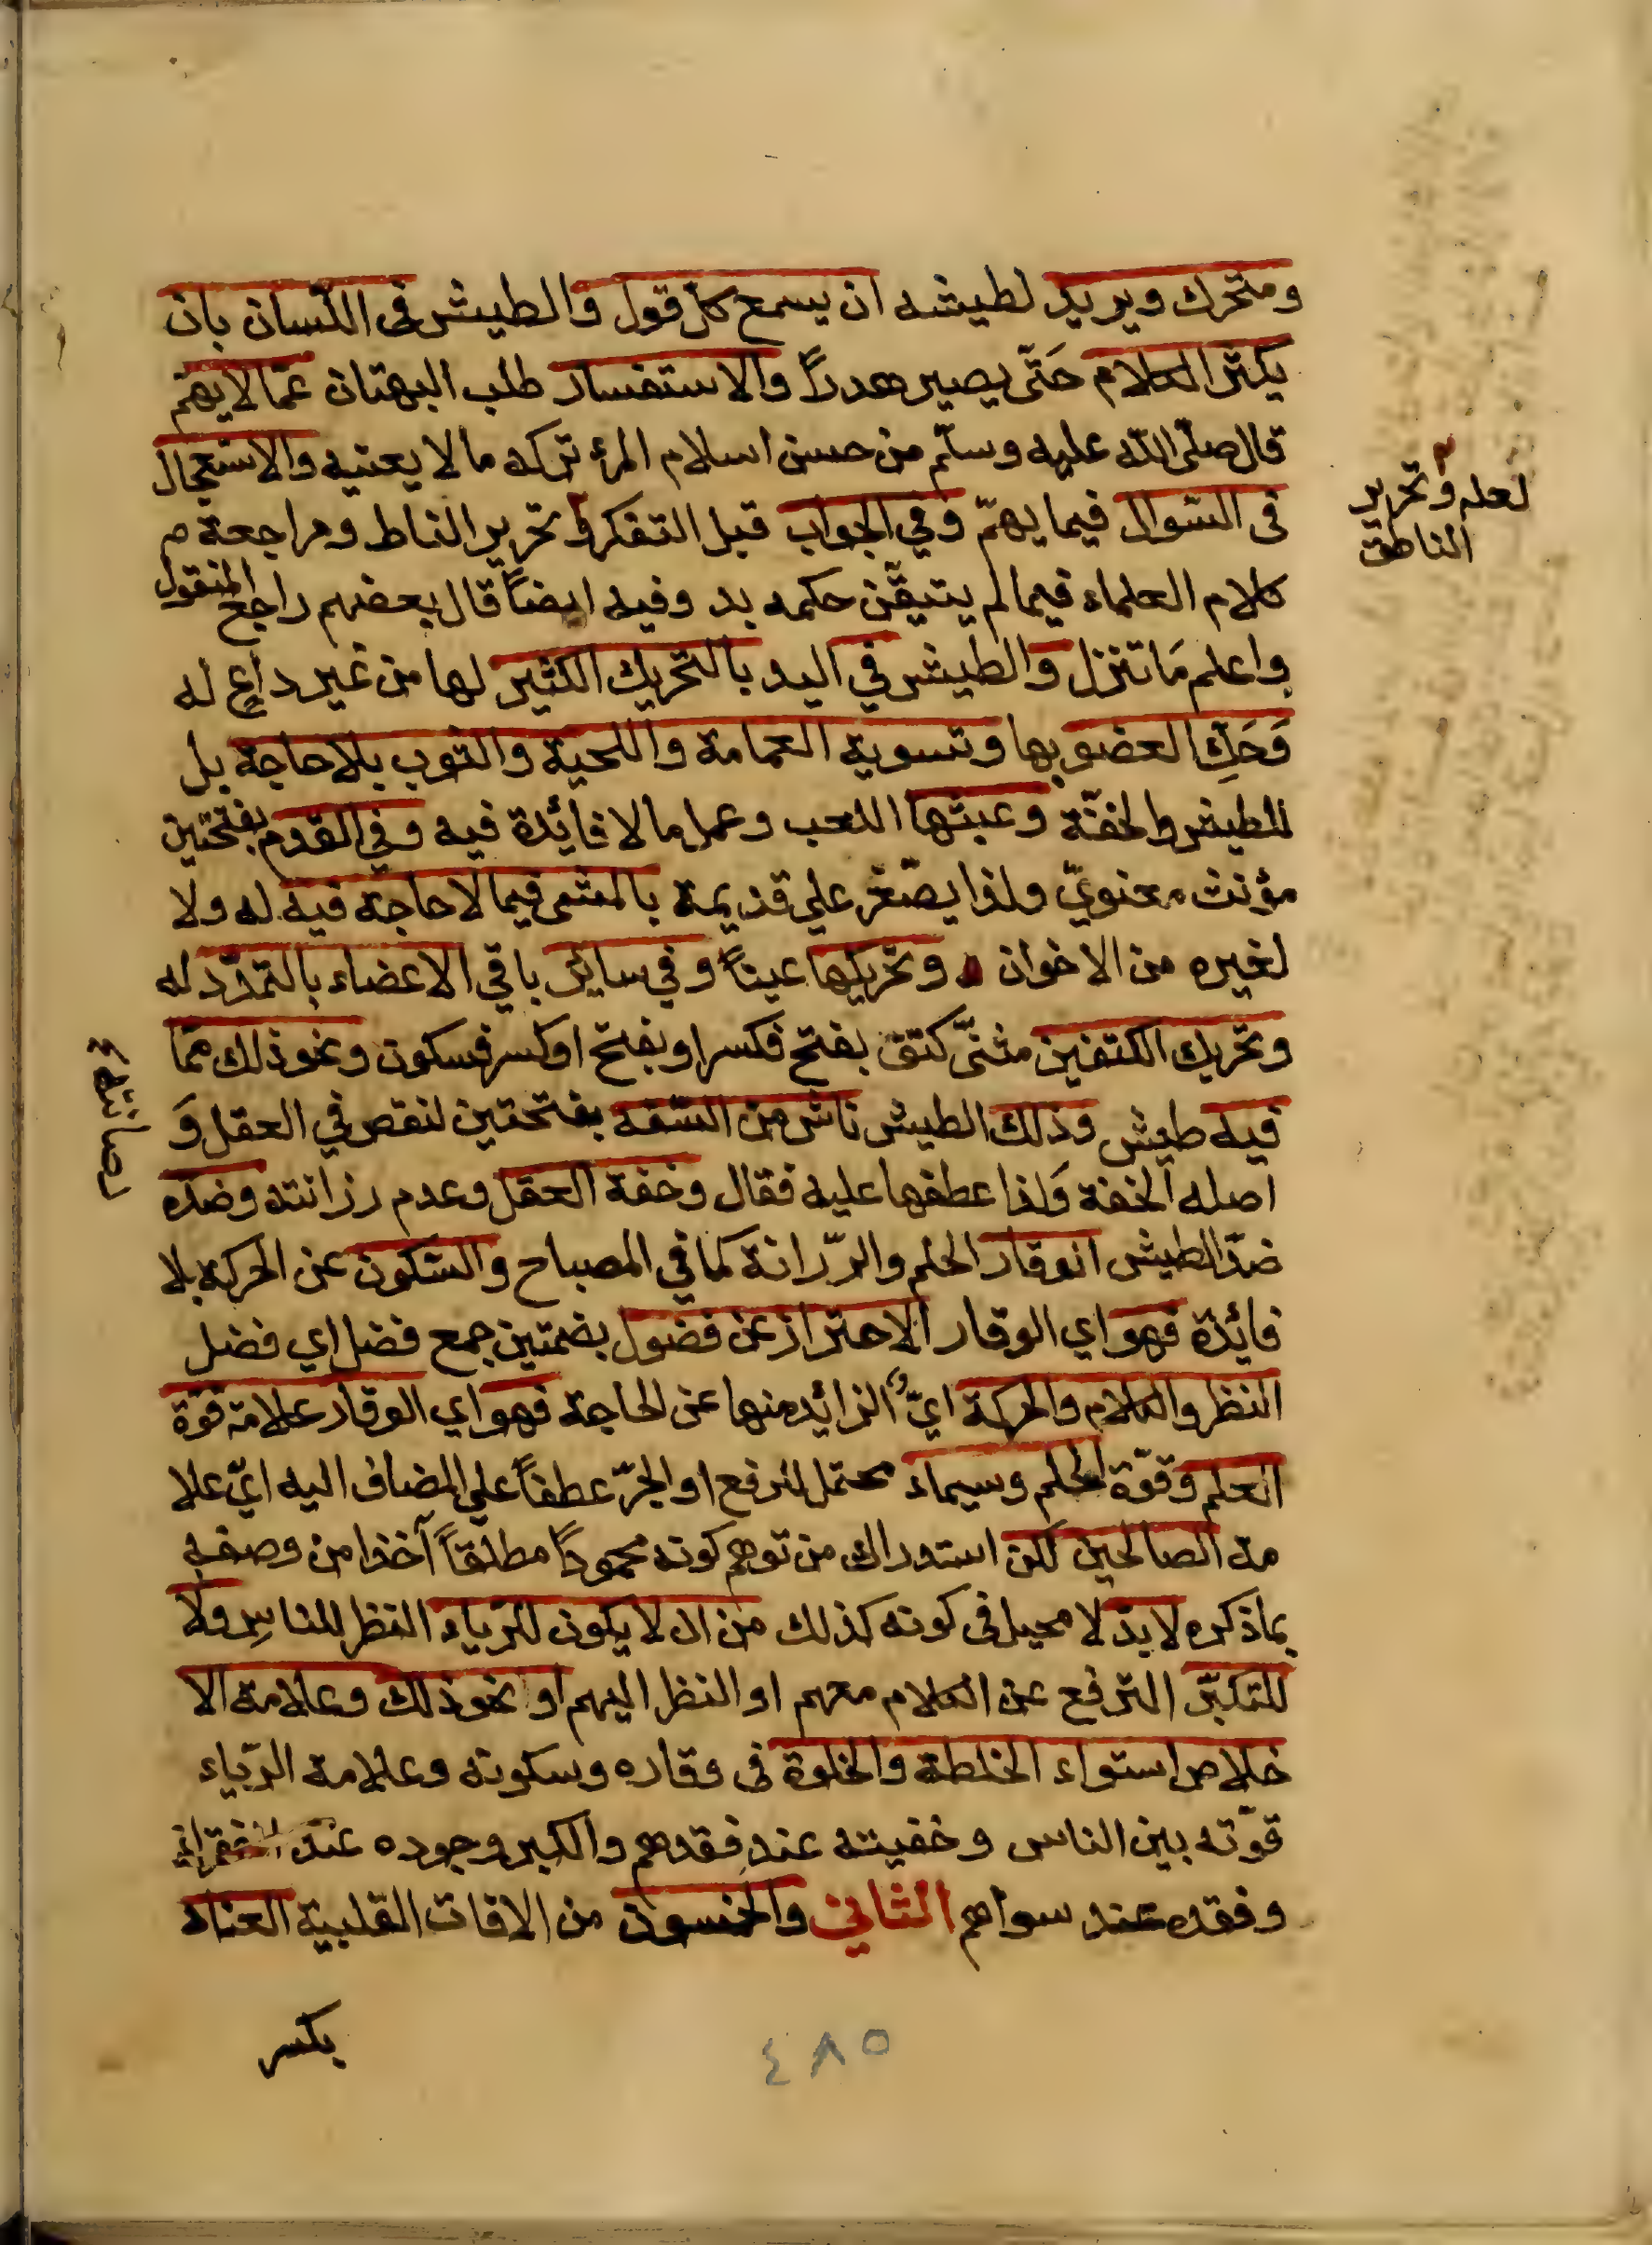 ومتحرك ويريد لطيشه ان يسمع كل قول والطيش فى اللسان بان
يكثر الكلام حَتّى يصير هدرًا والاستفسار طلب البهتان عمّا لا يهمّ
قال صلّى اللّه عليه وسلّم من حسن اسلام المرء تركه ما لا يعنيه والاستعجال
فى السّوال فيما يهمّ وفي الجواب قبل التفكر وتحرير الناط ومراجعة م
كلام العلماء فيما لم يتيقّن حكمه بد وفيه ايضاً قال بعضهم راجع المنقول
واعلم مَا تنزل والطيش في اليد بالتحريك الكثير لها من غير داعٍ له
وَحَكِّ العضو بها وتسوية العمامة واللحية والثوب بلا حاجة بل
للطيش والخفّة وعبثها اللعب وعمل ما لا فائدة فيه وفي القدم بفتحتين
مؤنث معنويّ ولذا يصّغر علي قديمة بالمشى فيما لا حاجة فيه له ولا
لغيره من الاخوان وتحريكها عبثاً وفي سائر باقي الاعضاء بالتمدّد له
وتحريك الكتفين مثنّى كتف بفتح فكسر او بفتح او كسر فسكون ونحو ذلك ممّا
فيه طيش وذلك الطيش ناش من السّفه بفتحتين لنقص في العقل وَ
اصله الخفة وَلذا عطفها عليه فقال وخفة العقل وعدم رزانته وضدّه
ضدّ الطيش الوقار الحلم والرّزانة كما في المصباح والسّكون عن الحركة بلا
فائدة فهو اي الوقار الاحتراز عن فضول بضمتين جمع فضل اي فضل
النظر والكلام والحركة ايّ الزائد منها عن الحاجة فهو اي الوقار علامة قوة
العلم وقوّة الحلم وسيماء محتمل للرفع او الجرّ عطفاً علي المضاف اليه ايّ علا
مة الصالحين لكن استدراك من توهم كونه محموداً مطلقاً آخذا من وصفه
بما ذكره لا بدّ لا محيل فى كونه كذلك من ان لا يكون للرّياء النظر للناسِ ولا
للتكبّر الترفع عن الكلام معهم او النظر اليهم او نحو ذلك وعلامة الا
خلاص استواء الخلطة والخلوة فى وقاره وسكونه وعلامة الرّياء
قوّته بين الناس وخفيته عند فقدهم والكبر وجوده عند الفقراء
وفقده عند سواهم الثاني والخمسون من الافات القلبية العناد
بكسر
لعله وتحرير
الناطق
٤٨٥